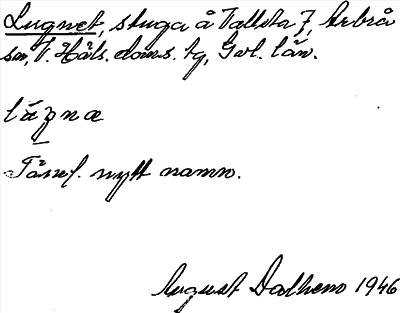 Lugnet, stuga å Tallsta 7, Arbrå
sn, V. Häls. doms. tg, Gvl. län.
Tåml. nytt namn.
August Dalhem 1946